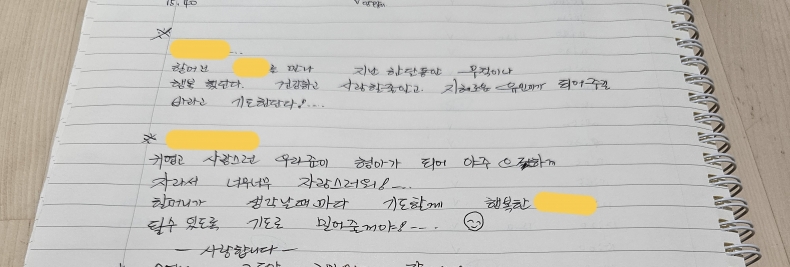 15:40
※
...
할머니 를 만나 지난 한달동안 무척이나
행복 했단다. 건강하고 사랑할줄알고 지혜로운 유민이가 되어주길
바라고 기도한단다!...
※
귀엽고 사랑스런 우리 형아가 되어 아주 의젓하게
자라서 너무너무 자랑스러워!....
할머니가 생각날때마다 기도할께 행복한
될수 있도록 기도로 밀어줄게야!....
- 사랑합니다 -